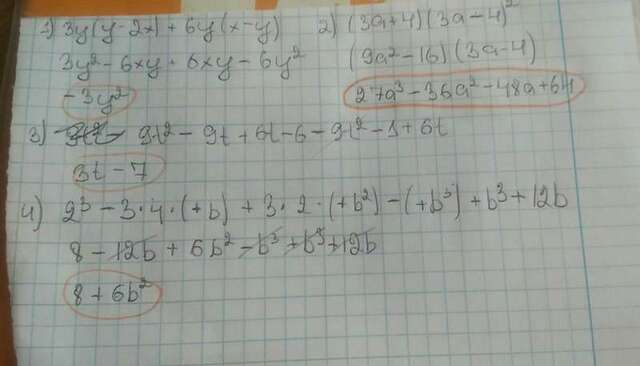 1) 3y(y-2x) + 6y(x-y)
3y² - 6xy + 6xy - 6y²
-3y²
2) (3a+4)(3a-4)²
(9a²-16)(3a-4)
27a³ - 36a² - 48a + 64
3) 9t² - 9t + 6t - 6 - 9t² - 1 + 6t
3t - 7
4) 2³ - 3·4·(+b) + 3·2·(+b²) - (+b³) + b³ + 12b
8 - 12b + 6b² - b³ + b³ + 12b
8 + 6b²